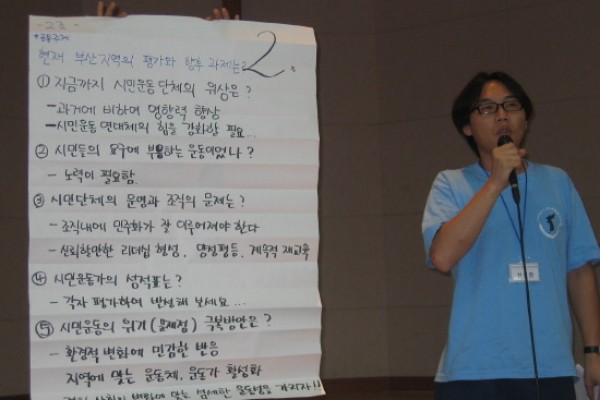 -2조-
*공통주제
현재 부산지역의 평가와 향후 과제는?
2.
① 지금까지 시민운동단체의 위상은?
-과거에 비하여 영향력 향상
-시민운동 연대체의 힘을 강화할 필요...
② 시민들의 요구에 부응하는 운동이었나?
- 노력이 필요함.
③ 시민단체의 운영과 조직의 문제는?
- 조직내에 민주화가 잘 이루어져야 한다
- 신뢰할만한 리더쉽 형성, 양성평등, 계속적 재교육
④ 시민운동가의 성적표는?
- 각자 평가하여 반성해 보세요...
⑤ 시민운동의 위기(문제점) 극복방안은?
- 환경적 변화에 민감한 반응
지역에 맞는 운동체, 운동가 활성화
변화에 맞는 섬세한 운동성을 가지자!!